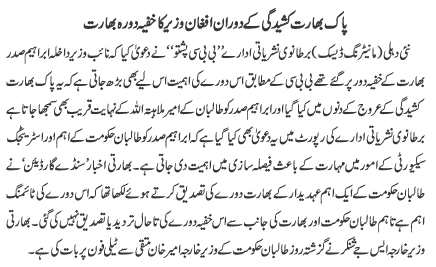 پاک بھارت کشیدگی کے دوران افغان وزیر کا خفیہ دورہ بھارت
نئی دہلی (مانیٹرنگ ڈیسک) برطانوی نشریاتی ادارے ”بی بی سی پشتو“ نے دعویٰ کیا کہ نائب وزیر داخلہ ابراہیم صدر
بھارت کے خفیہ دورے پر گئے تھے بی بی سی کے مطابق اس دورے کی اہمیت اس لیے بھی بڑھ جاتی ہے کہ یہ پاک بھارت
کشیدگی کے عروج کے دنوں میں کیا گیا اور ابراہیم صدر کو طالبان کے امیر ملا ہبتہ اللہ کے نہایت قریب بھی سمجھا جاتا ہے
برطانوی نشریاتی ادارے کی رپورٹ میں یہ دعویٰ بھی کیا گیا ہے کہ ابراہیم صدر کو طالبان حکومت کے اہم اور اسٹریٹجک
سیکیورٹی کے امور میں مہارت کے باعث فیصلہ سازی میں اہمیت دی جاتی ہے۔ بھارتی اخبار ’سنڈے گارڈیئن‘ نے
طالبان حکومت کے ایک اہم عہدیدار کے بھارت دورے کی تصدیق کرتے ہوئے لکھا تھا کہ اس دورے کی ٹائمنگ
اہم ہے تاہم طالبان حکومت اور بھارت کی جانب سے اس خفیہ دورے کی تاحال تردید یا تصدیق نہیں کی گئی۔ بھارتی
وزیر خارجہ ایس جے شنکر نے گزشتہ روز طالبان حکومت کے وزیر خارجہ امیر خان متقی سے ٹیلی فون پر بات کی ہے۔